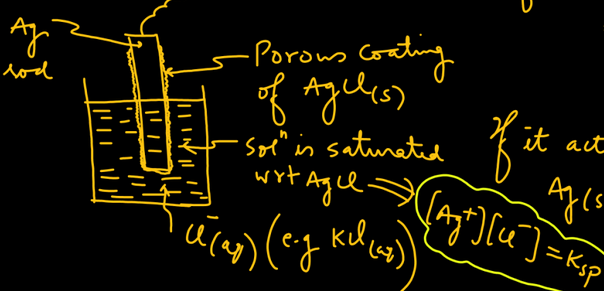 Ag
rod
Porous coating
of AgCl(s)
solⁿ is saturated
wrt AgCl ⇒ [Ag⁺][Cl⁻] = Ksp
Cl⁻(aq) (e.g KCl(aq))
If it act
Ag(s